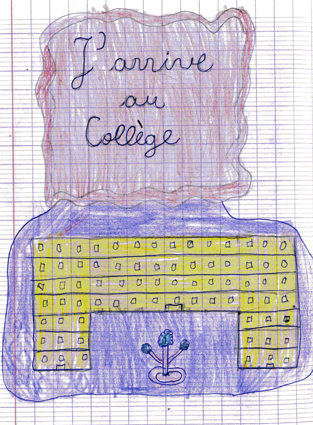 J'arrive
au
Collège